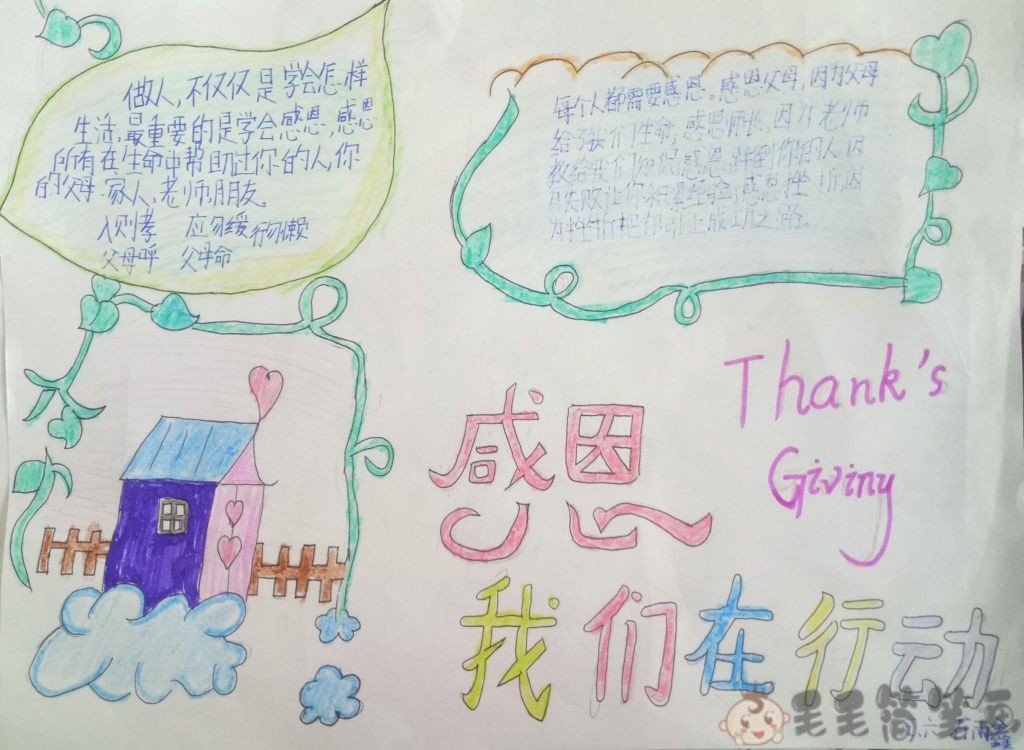 做人,不仅仅是学会怎样
生活,最重要的是学会感恩,感恩
所有在生命中帮助过你的人,你
的父母.家人,老师朋友。
入则孝 应勿缓 行勿懒
父母呼 父母命
每个人都需要感恩。感恩父母,因为父母
给予我们生命;感恩师长,因为老师
教给我们知识;感恩 到你的人,因
失败让你积累经验;感恩挫折,因
为挫折把你引上成功之路。
Thank's
Giviny
感恩
我们在行动
毛毛简笔画
六 石雨